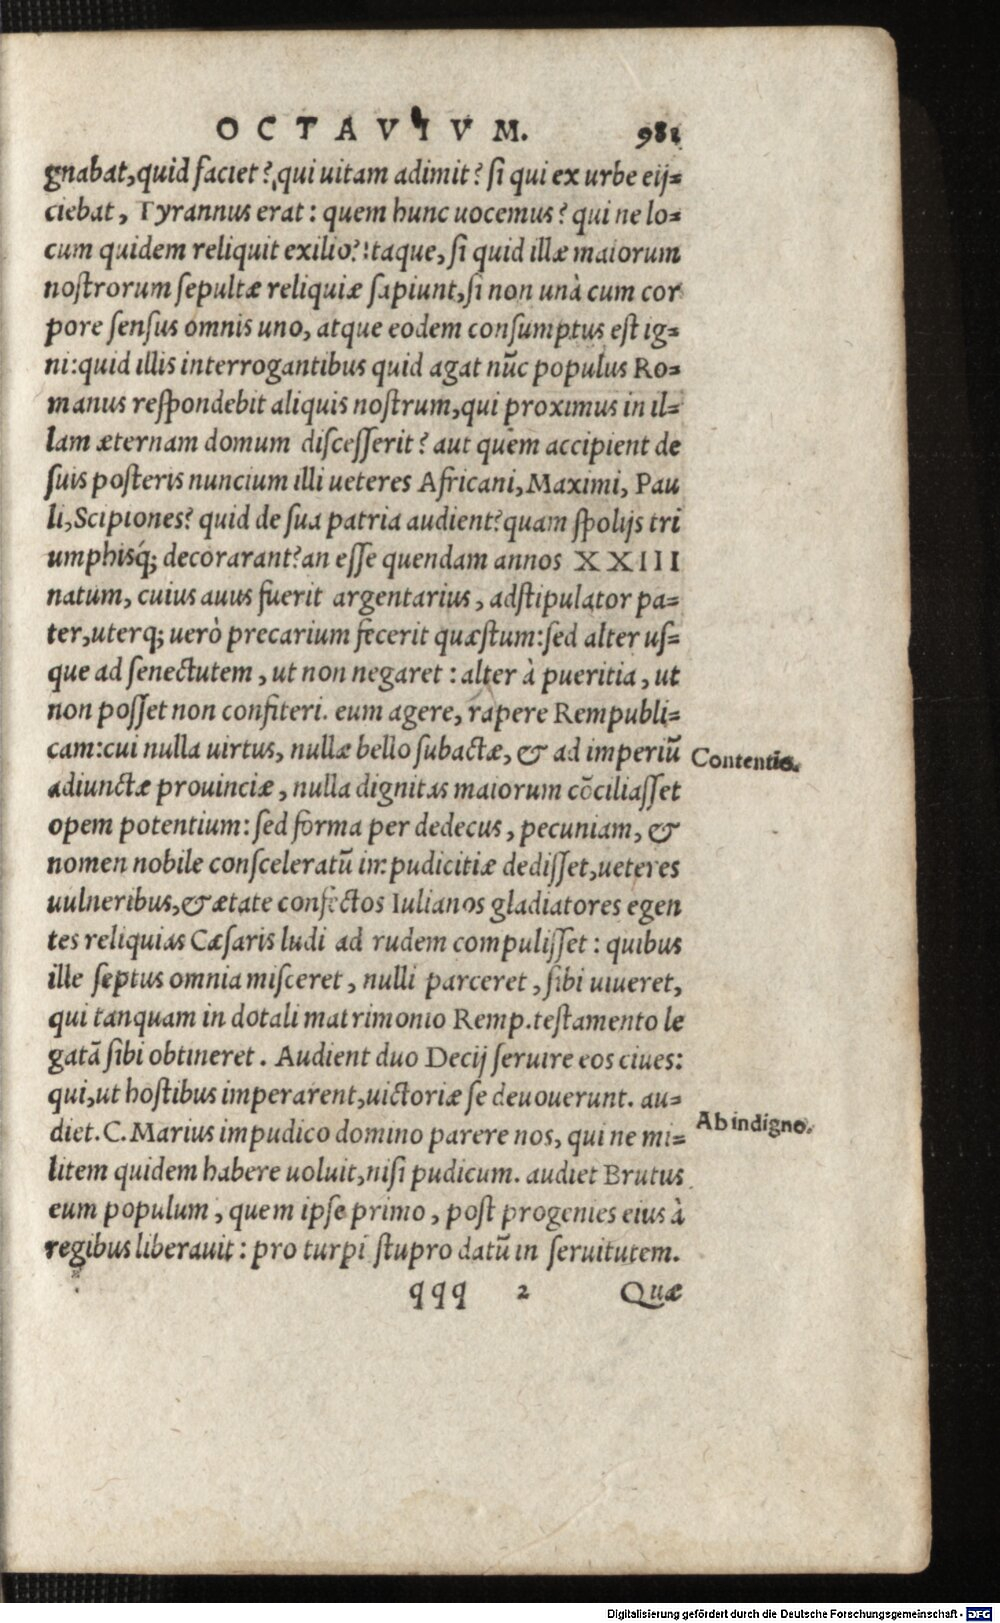 OCTAVIVM. 981
gnabat, quid faciet? qui uitam adimit? si qui ex urbe eij=
ciebat, Tyrannus erat: quem hunc uocemus? qui ne lo=
cum quidem reliquit exilio? Itaque, si quid illæ maiorum
nostrorum sepultæ reliquiæ sapiunt, si non unà cum cor
pore sensus omnis uno, atque eodem consumptus est ig=
ni: quid illis interrogantibus quid agat nūc populus Ro=
manus respondebit aliquis nostrum, qui proximus in il=
lam æternam domum discesserit? aut quem accipient de
suis posteris nuncium illi ueteres Africani, Maximi, Pau
li, Scipiones? quid de sua patria audient? quam spolijs tri
umphisq́; decorarant? an esse quendam annos XXIII
natum, cuius auus fuerit argentarius, adstipulator pa=
ter, uterq; uerò precarium fecerit quæstum: sed alter us=
que ad senectutem, ut non negaret: alter à pueritia, ut
non posset non confiteri. eum agere, rapere Rempubli=
cam: cui nulla uirtus, nullæ bello subactæ, & ad imperiū
Contentio.
adiunctæ prouinciæ, nulla dignitas maiorum cōciliasset
opem potentium: sed forma per dedecus, pecuniam, &
nomen nobile consceleratū impudicitiæ dedisset, ueteres
uulneribus, & ætate confectos Iulianos gladiatores egen
tes reliquias Cæsaris ludi ad rudem compulisset: quibus
ille septus omnia misceret, nulli parceret, sibi uiueret,
qui tanquam in dotali matrimonio Remp. testamento le
gatā sibi obtineret. Audient duo Decij seruire eos ciues:
qui, ut hostibus imperarent, uictoriæ se deuouerunt. au=
diet. C. Marius impudico domino parere nos, qui ne mi=
Ab indigno.
litem quidem habere uoluit, nisi pudicum. audiet Brutus
eum populum, quem ipse primo, post progenies eius à
regibus liberauit: pro turpi stupro datū in seruitutem.
qqq 2 Quæ
Digitalisierung gefördert durch die Deutsche Forschungsgemeinschaft - DFG